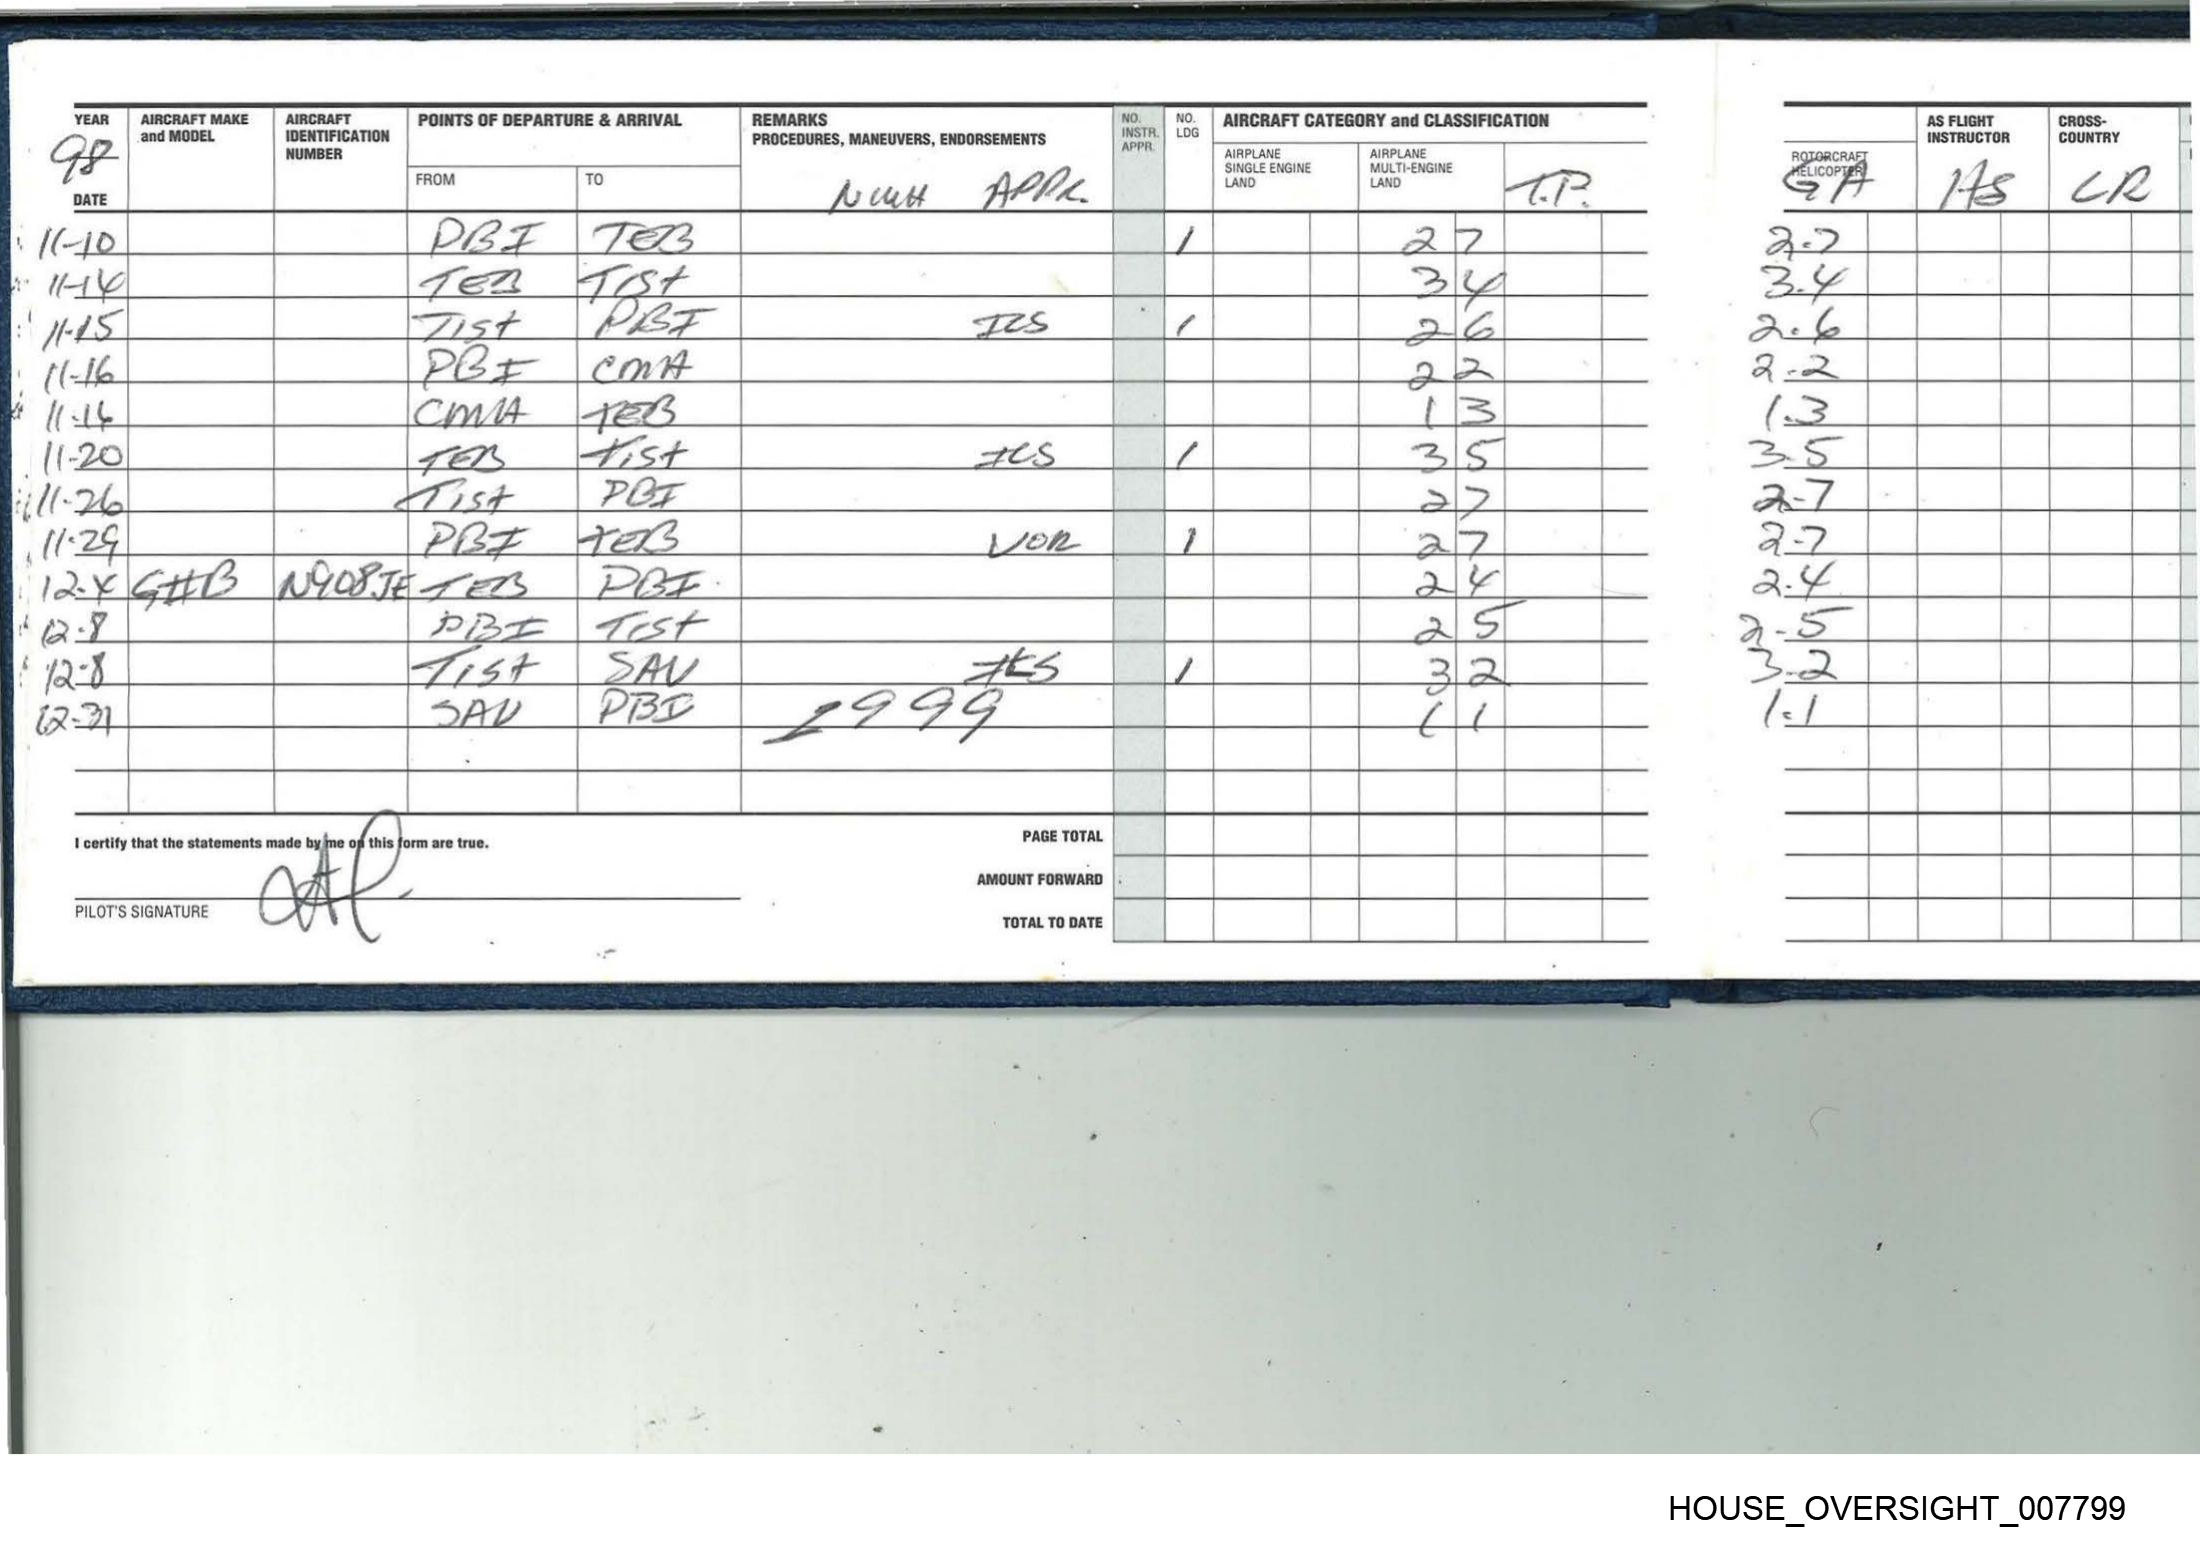 YEAR AIRCRAFT MAKE and MODEL AIRCRAFT IDENTIFICATION NUMBER POINTS OF DEPARTURE & ARRIVAL REMARKS PROCEDURES, MANEUVERS, ENDORSEMENTS NO. INSTR. APPR. NO. LDG AIRCRAFT CATEGORY and CLASSIFICATION AS FLIGHT INSTRUCTOR CROSS-COUNTRY
98 AIRPLANE SINGLE ENGINE LAND AIRPLANE MULTI-ENGINE LAND ROTORCRAFT HELICOPTER
DATE FROM TO APPR. T.P. GA
11-10 PBI TEB 1 2 7 2.7
11-14 TEB Tist 3 4 3.4
11-15 Tist PBI ILS 1 2 6 2.6
11-16 PBI CMA 2 2 2.2
11-16 CMA TEB 1 3 1.3
11-20 TEB Tist ILS 1 3 5 3.5
11-26 Tist PBI 2 7 2.7
11-29 PBI TEB VOR 1 2 7 2.7
12-4 N908JE TEB PBI 2 4 2.4
12-8 PBI Tist 2 5 2.5
12-8 Tist SAV ILS 1 3 2 3.2
12-31 SAV PBI 1999 1 1 1.1
I certify that the statements made by me on this form are true. PAGE TOTAL
AMOUNT FORWARD
PILOT'S SIGNATURE TOTAL TO DATE
HOUSE_OVERSIGHT_007799